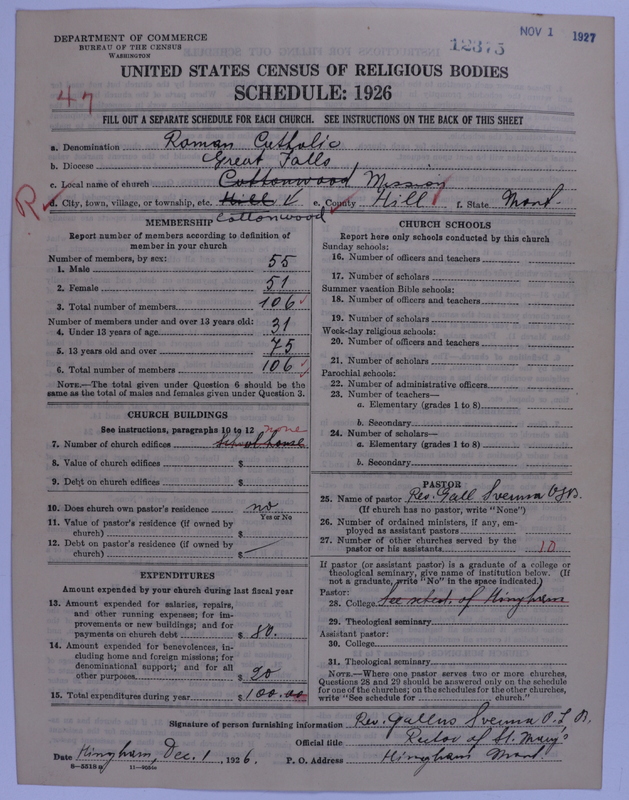 DEPARTMENT OF COMMERCE
BUREAU OF THE CENSUS
WASHINGTON
12375
NOV 1 1927
UNITED STATES CENSUS OF RELIGIOUS BODIES
SCHEDULE: 1926
47
FILL OUT A SEPARATE SCHEDULE FOR EACH CHURCH. SEE INSTRUCTIONS ON THE BACK OF THIS SHEET
a. Denomination Roman Catholic
b. Diocese Great Falls
c. Local name of church Cottonwood Mission
R
d. City, town, village, or township, etc. Hill e. County Hill f. State Mont.
Cottonwood
MEMBERSHIP
Report number of members according to definition of
member in your church
Number of members, by sex:
1. Male 55
2. Female 51
3. Total number of members 106
Number of members under and over 13 years old:
4. Under 13 years of age 31
5. 13 years old and over 75
6. Total number of members 106
NOTE.—The total given under Question 6 should be the
same as the total of males and females given under Question 3.
CHURCH BUILDINGS
See instructions, paragraphs 10 to 12 none
7. Number of church edifices School house
8. Value of church edifices $
9. Debt on church edifices $
10. Does church own pastor's residence no
Yes or No
11. Value of pastor's residence (if owned by
church) $
12. Debt on pastor's residence (if owned by
church) $
EXPENDITURES
Amount expended by your church during last fiscal year
13. Amount expended for salaries, repairs,
and other running expenses; for im-
provements or new buildings; and for
payments on church debt $ 80.
14. Amount expended for benevolences, in-
cluding home and foreign missions; for
denominational support; and for all
other purposes $ 20
15. Total expenditures during year $ 100.00
CHURCH SCHOOLS
Report here only schools conducted by this church
Sunday schools:
16. Number of officers and teachers
17. Number of scholars
Summer vacation Bible schools:
18. Number of officers and teachers
19. Number of scholars
Week-day religious schools:
20. Number of officers and teachers
21. Number of scholars
Parochial schools:
22. Number of administrative officers
23. Number of teachers—
a. Elementary (grades 1 to 8)
b. Secondary
24. Number of scholars—
a. Elementary (grades 1 to 8)
b. Secondary
PASTOR
25. Name of pastor Rev. Gall Sverma O.S.B.
(If church has no pastor, write "None")
26. Number of ordained ministers, if any, em-
ployed as assistant pastors
27. Number of other churches served by the
pastor or his assistants 10
If pastor (or assistant pastor) is a graduate of a college or
theological seminary, give name of institution below. (If
not a graduate, write "No" in the space indicated.)
Pastor:
28. College See sched. of Hingham
29. Theological seminary
Assistant pastor:
30. College
31. Theological seminary
NOTE.—Where one pastor serves two or more churches,
Questions 28 and 29 should be answered only on the schedule
for one of the churches; on the schedules for the other churches,
write "See schedule for church."
Signature of person furnishing information Rev. Gallus Sverma O.S.B.
Official title Rector of St. Mary's
Date Hingham, Dec. 1, 1926. P. O. Address Hingham Mont.
8—5518 11—9084